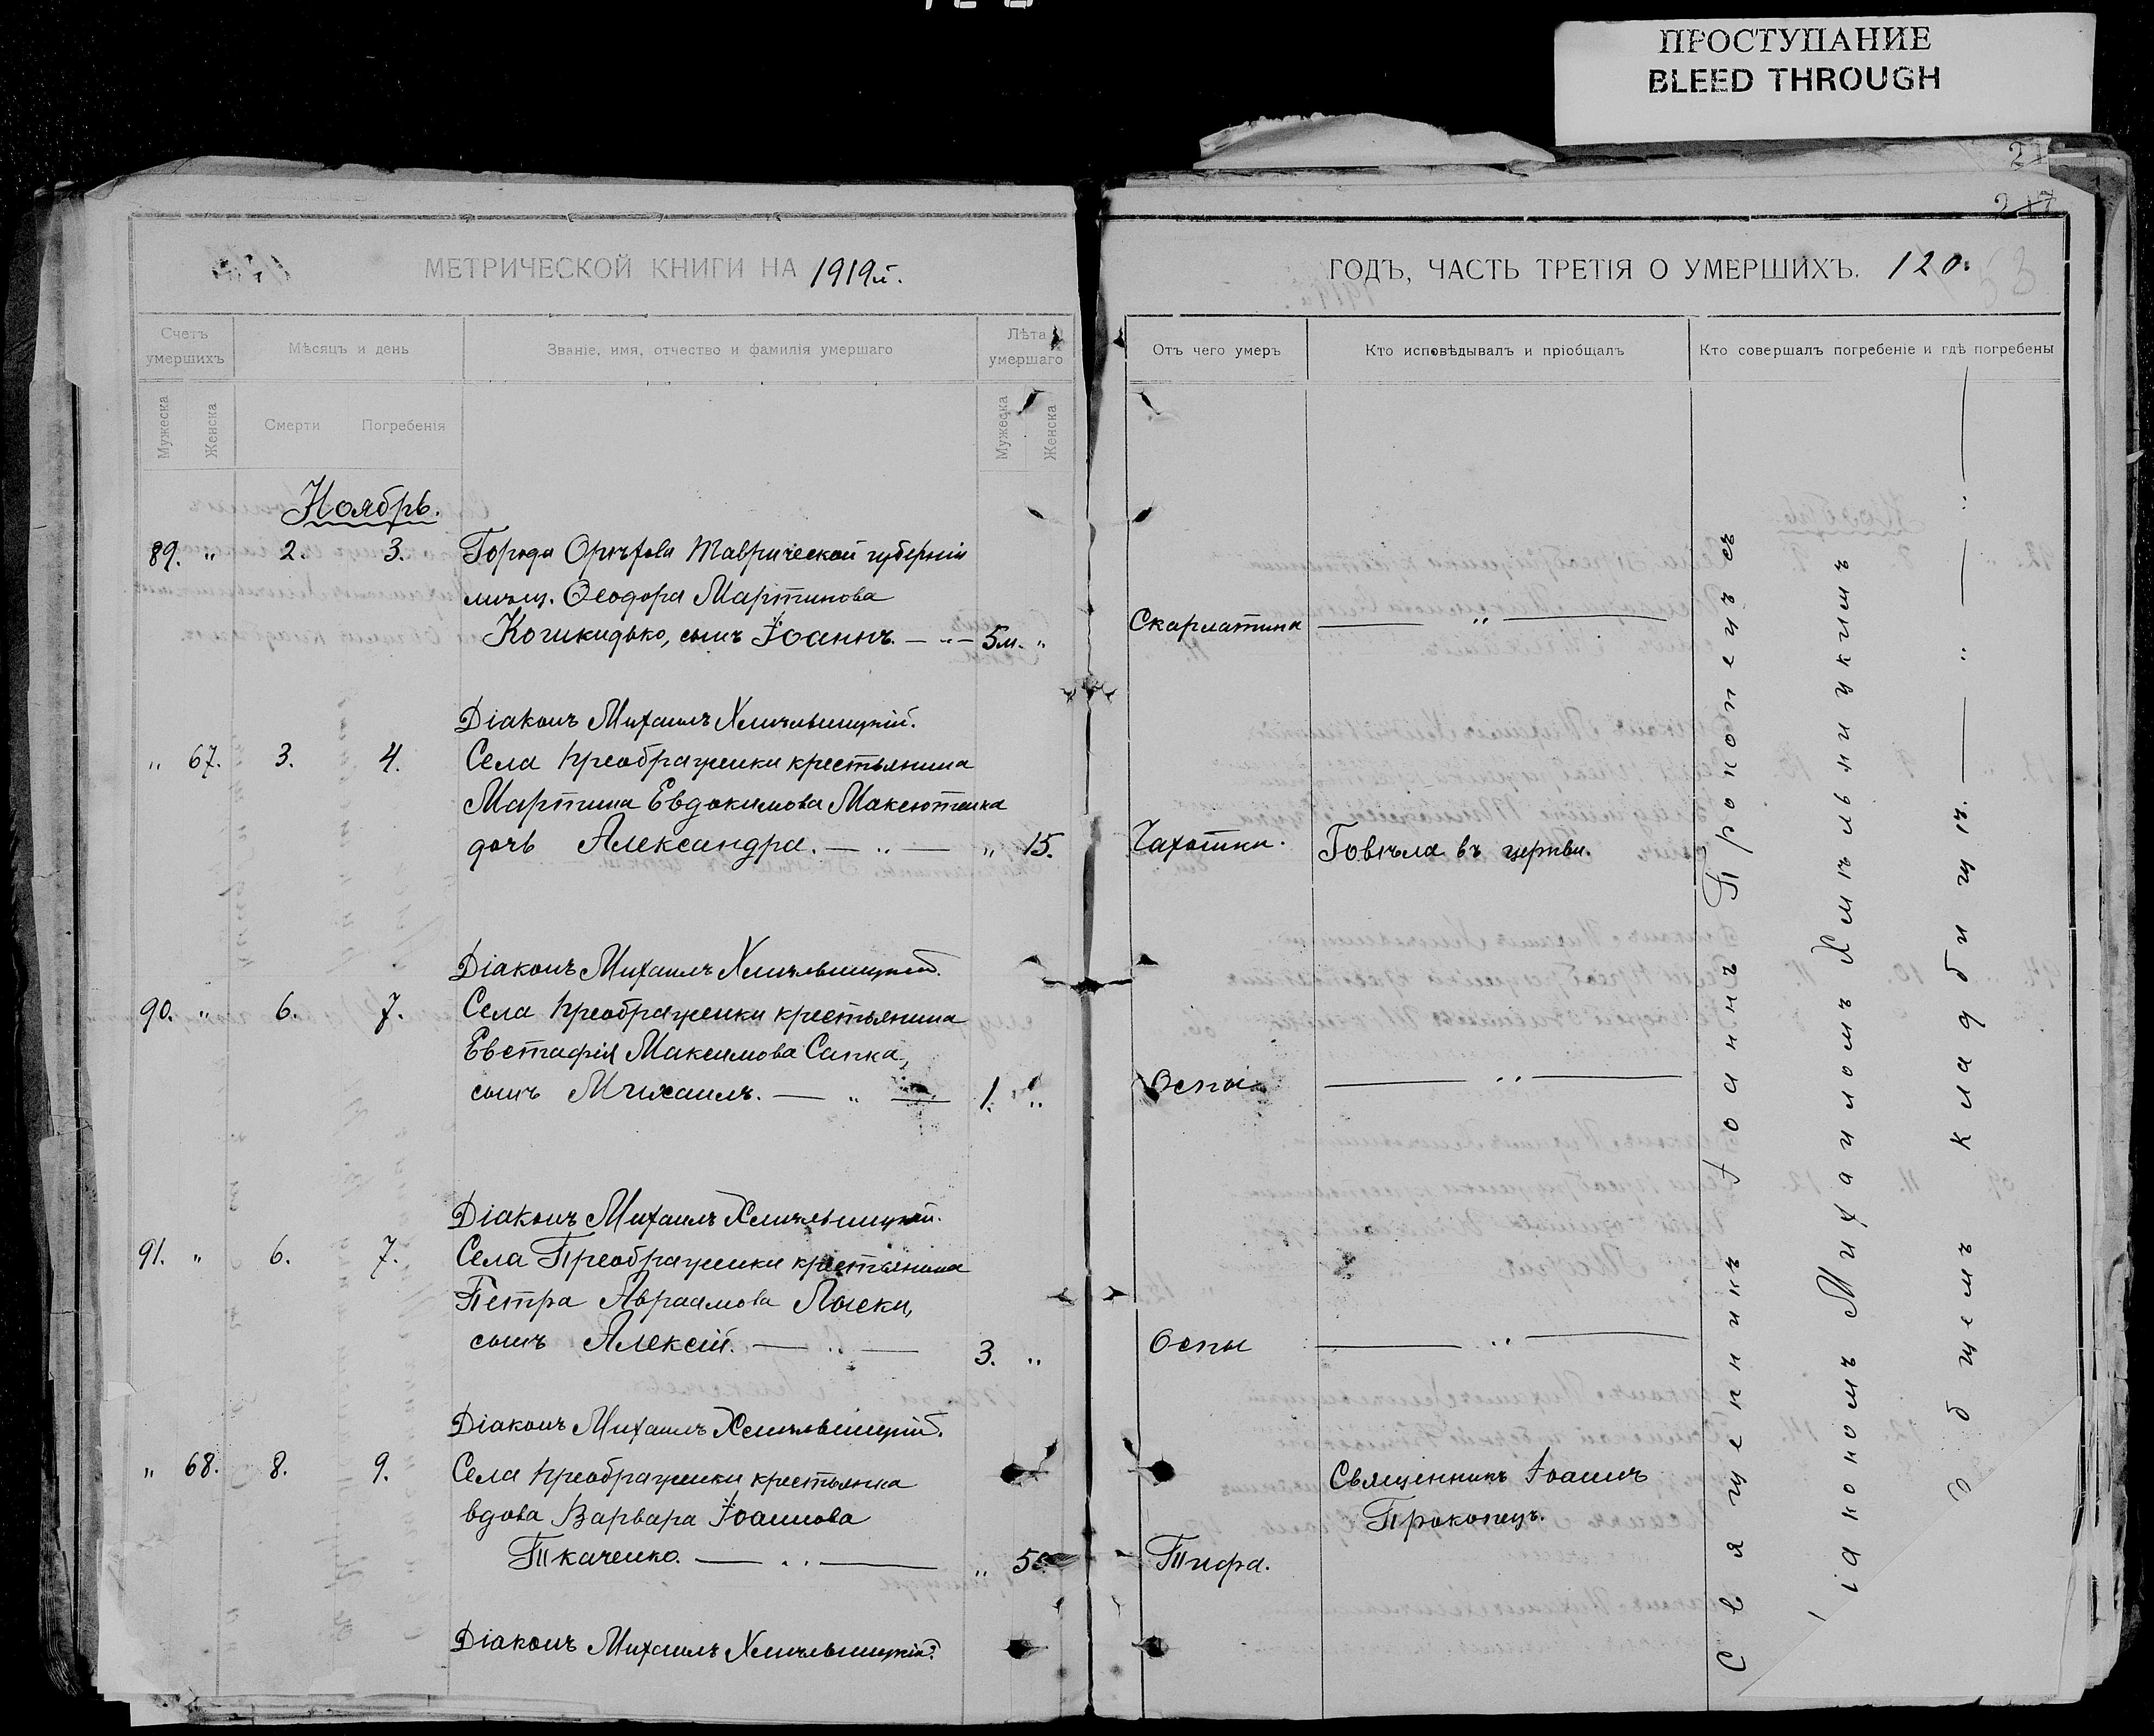 ПРОСТУПАНИЕ
BLEED THROUGH
217
МЕТРИЧЕСКОЙ КНИГИ НА 1919й.
Счетъ умершихъ
Мѣсяцъ и день
Званіе, имя, отчество и фамилія умершаго
Лѣта умершаго
Мужеска
Женска
Смерти
Погребенія
Мужеска
Женска
Ноябрь.
89. " 2. 3. Города Орѣхова Таврической губерніи
мѣщ. Ѳеодора Мартинова
сынъ Іоаннъ. — " — 5 м. "
Діаконъ Михаилъ Хмѣльницкій.
" 67. 3. 4. Села Преображенки крестьянина
Мартина Евдокимова Максютенка
дочь Александра. — " — " 15.
Діаконъ Михаилъ Хмѣльницкій.
90. " 6. 7. Села Преображенки крестьянина
Евстафія Максимова Сапка,
сынъ Михаилъ. — " — 1. "
Діаконъ Михаилъ Хмѣльницкій.
91. " 6. 7. Села Преображенки крестьянина
Петра Авраамова Лыски,
сынъ Алексій. — " — 3. "
Діаконъ Михаилъ Хмѣльницкій.
" 68. 8. 9. Села Преображенки крестьянка
вдова Варвара Іоаннова
Ткаченко. — " — "
Діаконъ Михаилъ Хмѣльницкій.
ГОДЪ, ЧАСТЬ ТРЕТІЯ О УМЕРШИХЪ. 120.
Отъ чего умеръ
Кто исповѣдывалъ и пріобщалъ
Кто совершалъ погребеніе и гдѣ погребены
Скарлатина — " —
Чахотки. Говѣла въ церкви.
Оспы — " —
Оспы — " —
Священникъ Іоаннъ
Прокопецъ.
Тифа.
Священникъ Іоаннъ Прокопецъ съ
діакономъ Михаиломъ Хмѣльницкимъ
Общемъ кладбищѣ. — " — " —